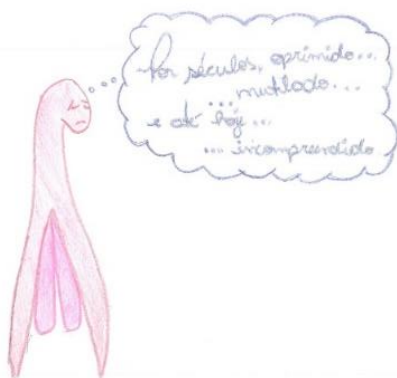 Por séculos, oprimido...
mutilado...
...
e até hoje...
... incompreendido